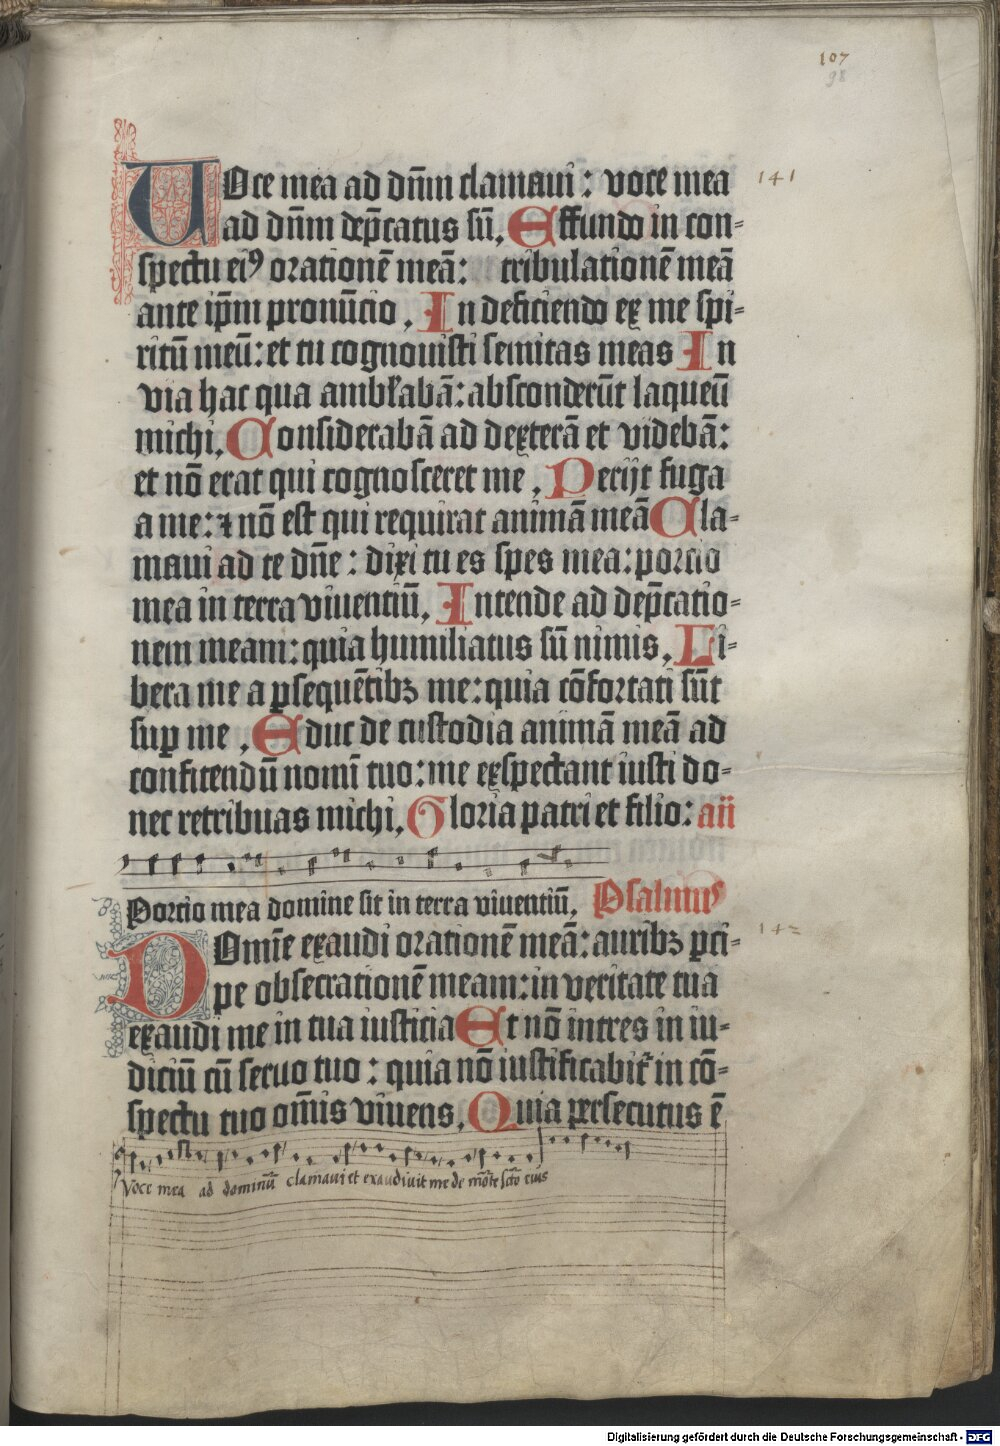 107
98
UOce mea ad dn̄m clamaui: voce mea
141
ad dn̄m dep̄catus sū, Effundo in con-
spectu eiꝰ orationē meā: tribulationē meā
ante ip̄m pronūcio, In deficiendo ex me spi-
ritū meū: et tu cognouisti semitas meas In
via hac qua ambl̵abā: absconderūt laqueū
michi, Considerabā ad dexterā et videbā:
et nō erat qui cognosceret me, Perijt fuga
a me: ⁊ nō est qui requirat animā meā Cla-
maui ad te dn̄e: dixi tu es spes mea: porcio
mea in terra viuentiū, Intende ad dep̄catio-
nem meam: quia humiliatus sū nimis, Li-
bera me a ꝑsequētibꝫ me: quia cōfortati sūt
suꝑ me, Educ de custodia animā meā ad
confitendū nomī tuo: me exspectant iusti do-
nec retribuas michi, Gloria patri et filio: an̄
Porcio mea domine sit in terra viuentiū, Psalmus
DOmīe exaudi orationē meā: auribꝫ ꝑci-
142
pe obsecrationē meam: in veritate tua
exaudi me in tua iusticia Et nō intres in iu-
diciū cū seruo tuo: quia nō iustificabit᷑ in cō-
spectu tuo om̄is viuens, Quia persecutus ē
Voce mea ad dominū clamavi et exaudivit me de mōte scto eius
Digitalisierung gefördert durch die Deutsche Forschungsgemeinschaft - DFG